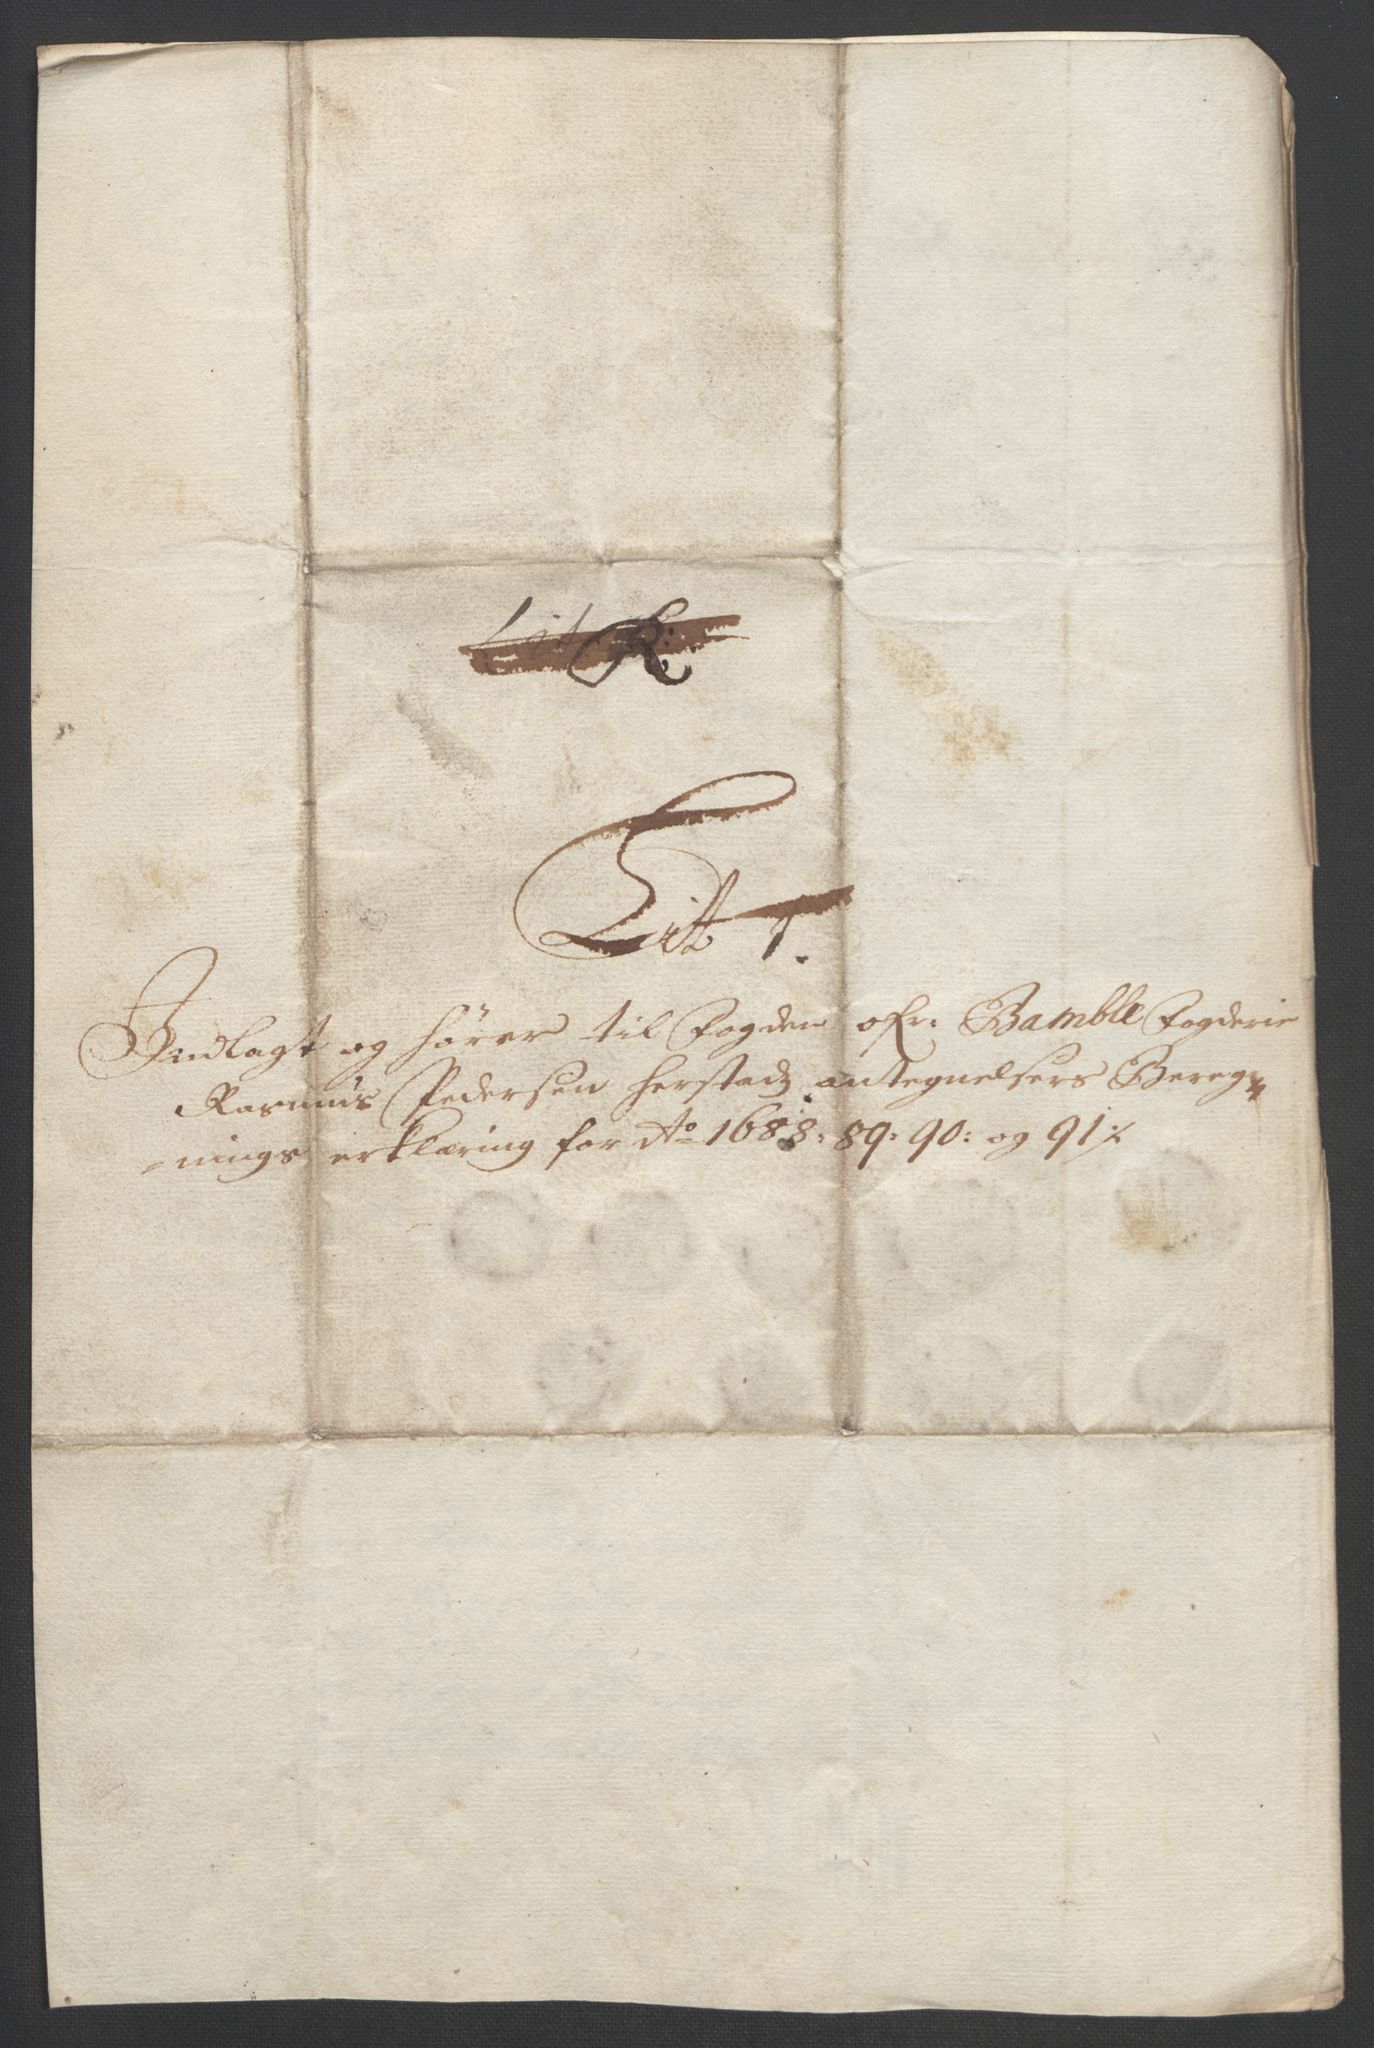 Lit R:
Litt 1.
Indlagt og hører til Fogden ofr: Bamble Fogderie
Rasmus Pedersen herstads antegnelsers Bereg=
=nings erklæring for Ao 1688: 89: 90: og 91 ⁒